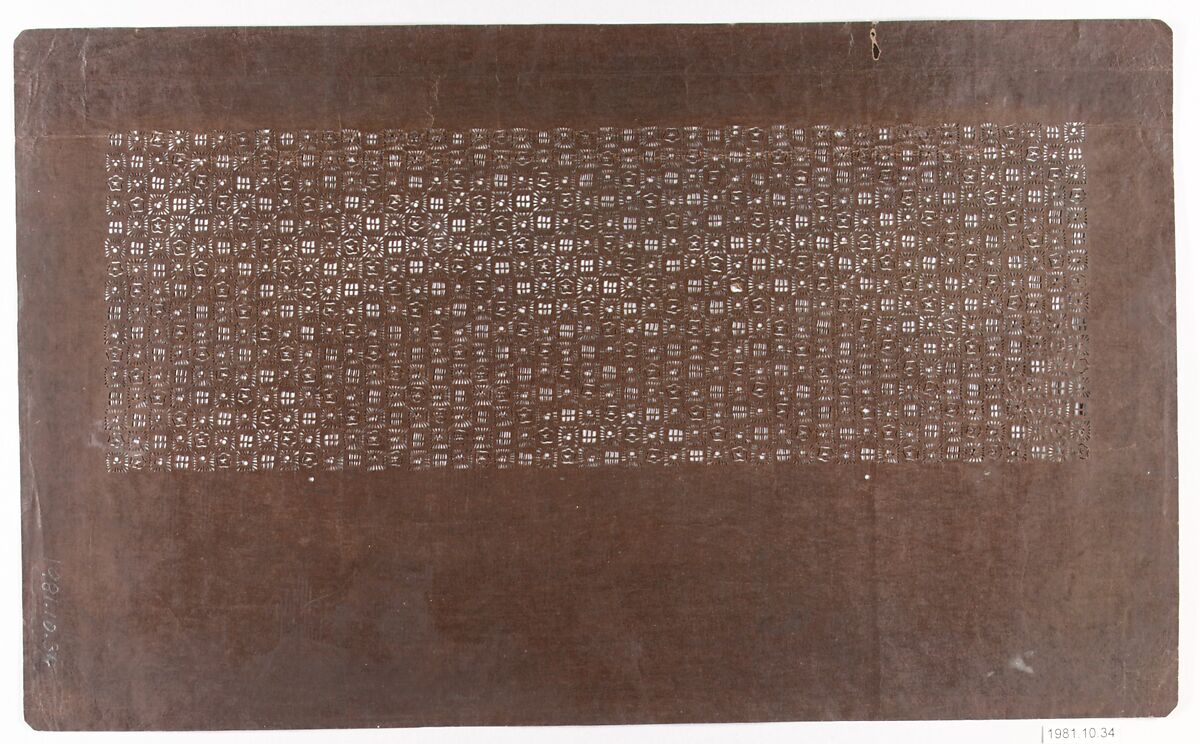 1981.10.34
1981.10.34